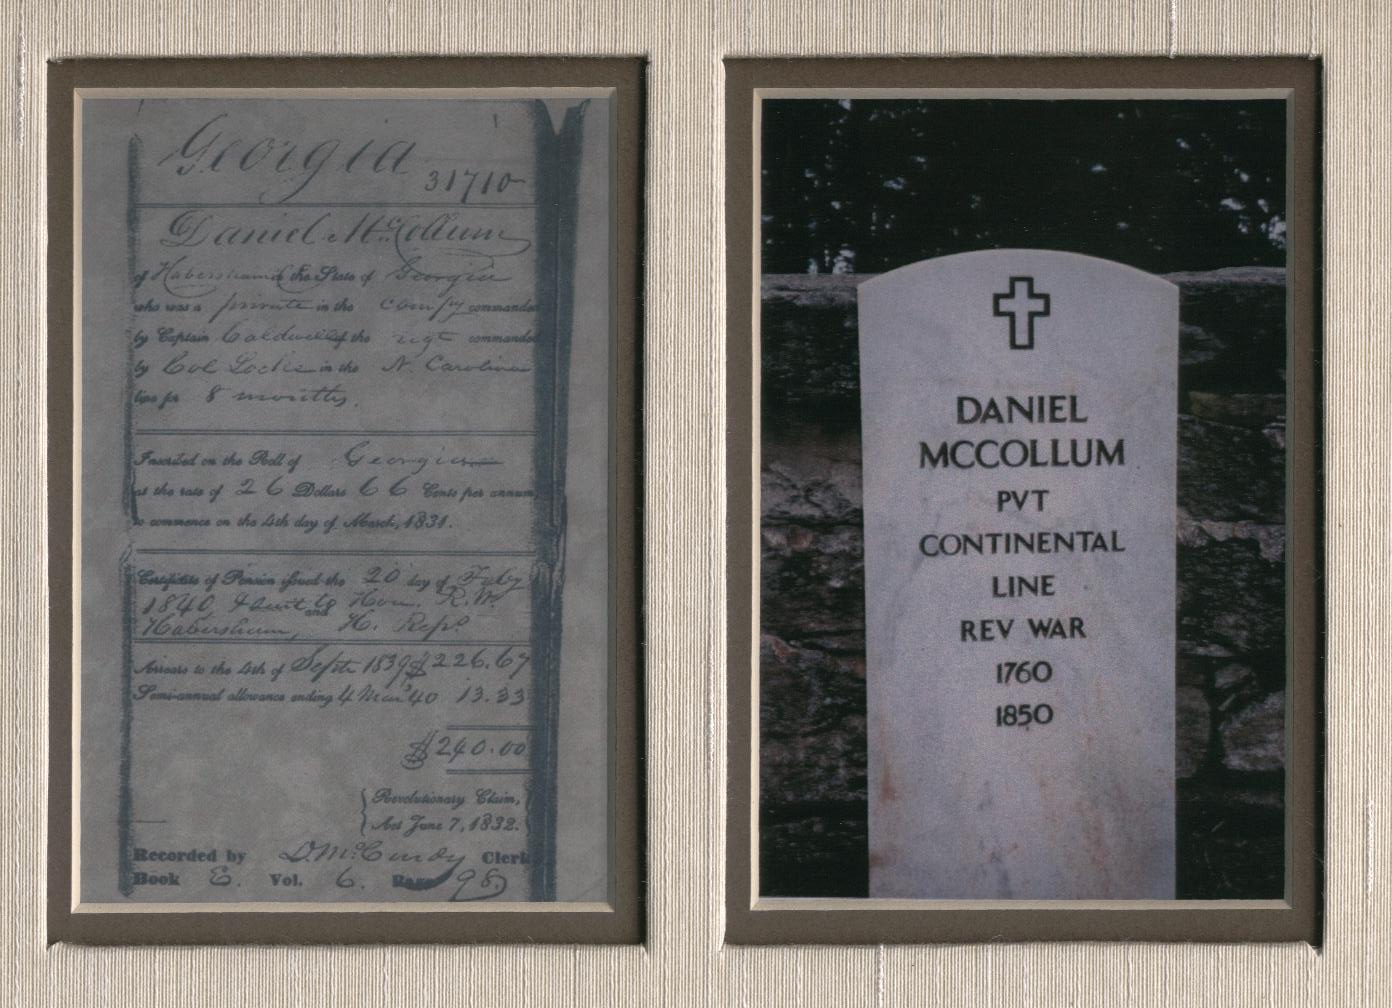 Georgia
31710
Daniel McCollum
of Habersham in the State of Georgia
who was a private in the compy commanded
by Captain Caldwell of the regt commanded
by Col Locke in the N Carolina
line for 8 months.
Inscribed on the Roll of Georgia
at the rate of 26 Dollars 66 Cents per annum,
to commence on the 4th day of March, 1831.
Certificate of Pension issued the 20 day of Feby
1840, & sent to Hon. R. W.
Habersham, H. Reps
Arrears to the 4th of Septr 1839 $226.67
Semi-annual allowance ending 4 Mar '40 13.33
$240.00
Revolutionary Claim,
Act June 7, 1832.
Recorded by D. McCurdy Clerk
Book E. Vol. 6. Page 98.
DANIEL
MCCOLLUM
PVT
CONTINENTAL
LINE
REV WAR
1760
1850